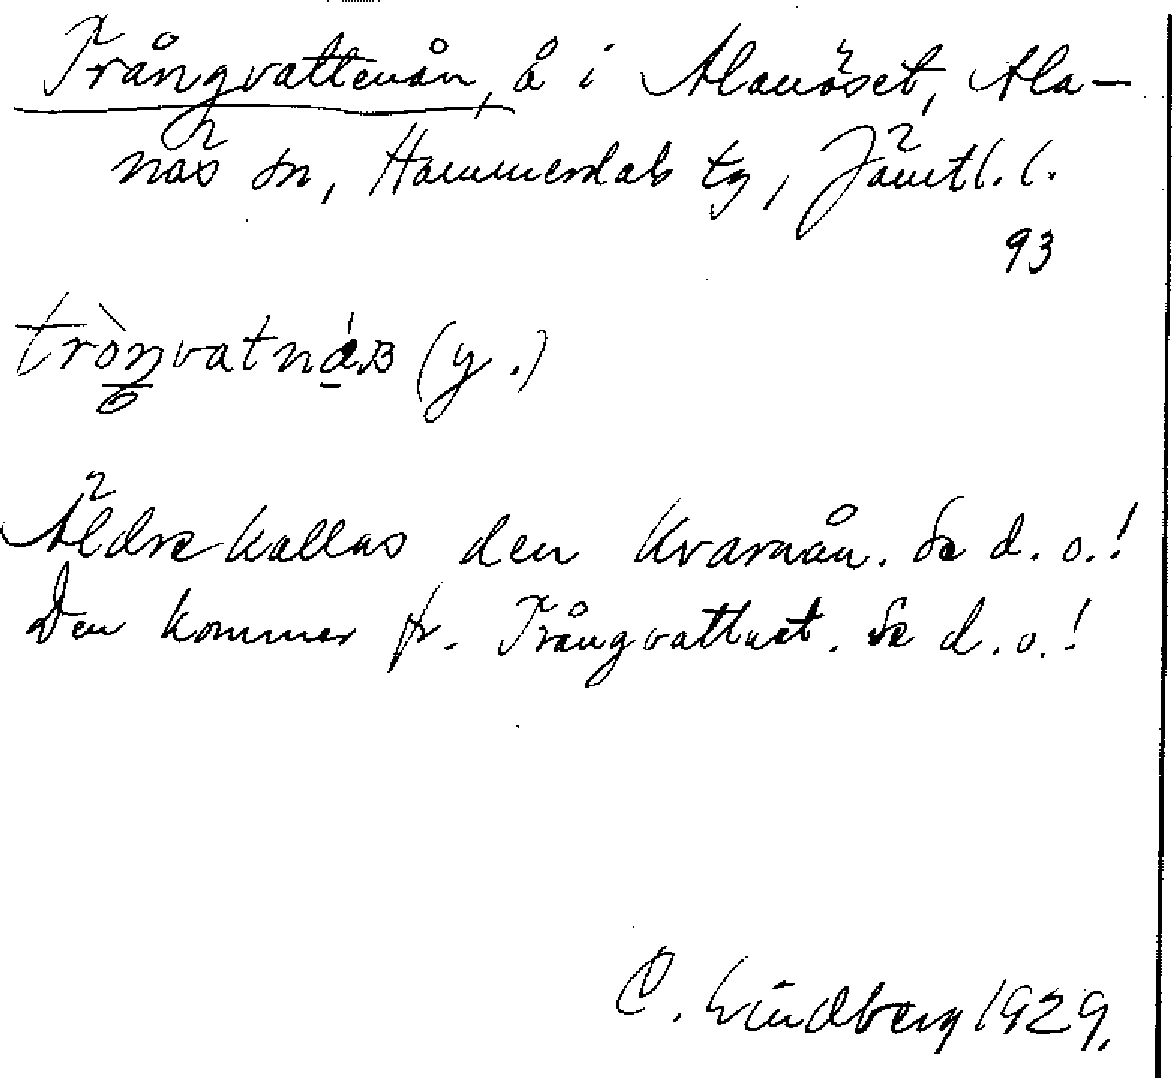 Trångvattenån, å i Alanäset, Ala-
näs sn, Hammerdals tg, Jämtl. l.
93
(y.)
Äldre kallas den Kvarnån. Se d. o.!
Den kommer fr. Trångvattnet. Se d. o.!
C. Lindberg 1929.